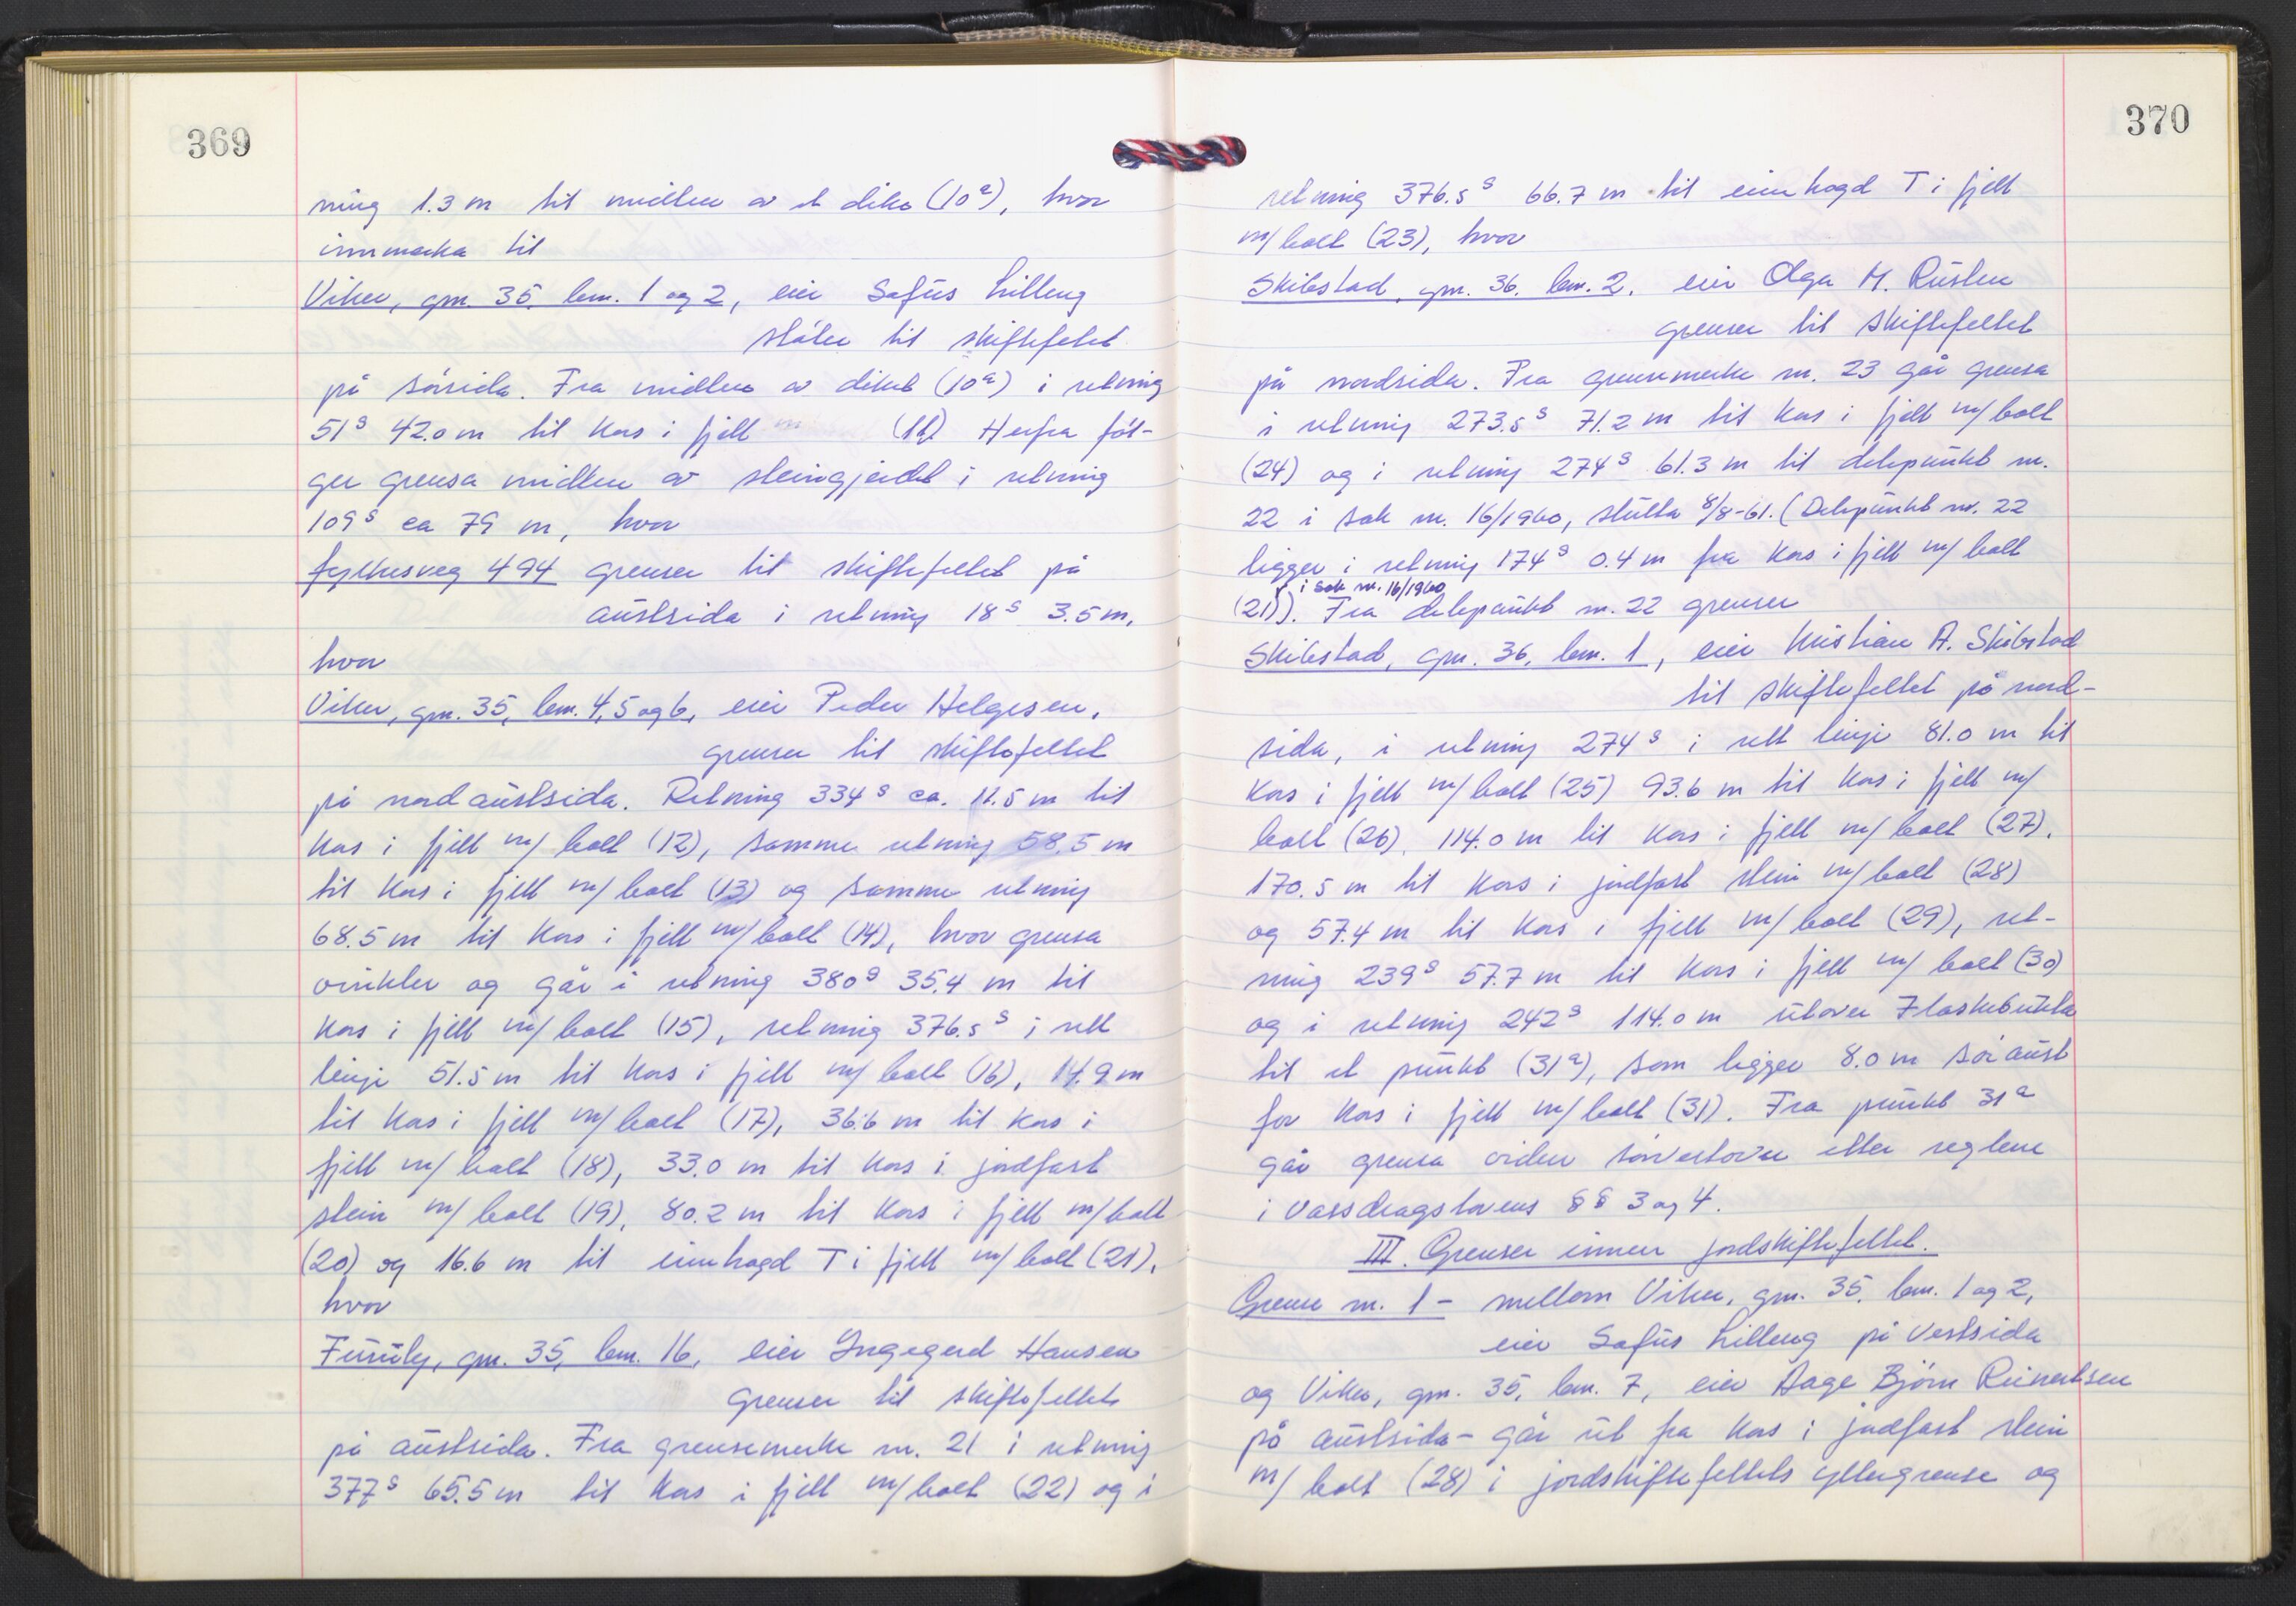 369
ning 1.3 m til midten av et dike (10a), hvor
innmarka til
Viker, gnr. 35, bnr. 1 og 2, eier Sofus Lilleng
støter til skiftefeltet
på sørsida. Fra midten av diket (10a) i retning
51g 42.0 m til kors i fjell m (11). Herfra føl-
ger grensa midten av steingjerdet i retning
109g ca 79 m, hvor
fylkesveg 494 grenser til skiftefeltet på
austsida i retning 18g 3.5 m,
hvor
Viker, gnr. 35, bnr. 4, 5 og 6, eier Peder Helgesen,
grenser til skiftefeltet
på nordaustsida. Retning 334g ca. 11.5 m til
kors i fjell m/ bolt (12), samme retning 58.5 m
til kors i fjell m/ bolt (13) og samme retning
68.5 m til kors i fjell m/ bolt (14), hvor grensa
vinkler og går i retning 380g 35.4 m til
kors i fjell m/ bolt (15), retning 376.5g i rett
linje 51.5 m til kors i fjell m/ bolt (16), 14.9 m
til kors i fjell m/ bolt (17), 36.6 m til kors i
fjell m/ bolt (18), 33.0 m til kors i jordfast
stein m/ bolt (19), 80.2 m til kors i fjell m/ bolt
(20) og 16.6 m til innhogd T i fjell m/ bolt (21),
hvor
Furuly, gnr. 35, bnr. 16, eier Ingegerd Hansen
grenser til skiftefeltet
på austsida. Fra grensemerke nr. 21 i retning
377g 65.5 m til kors i fjell m/ bolt (22) og i
370
retning 376.5g 66.7 m til innhogd T i fjell
m/ bolt (23), hvor
Skibstad, gnr. 36, bnr. 2, eier Olga M. Rusten
grenser til skiftefeltet
på nordsida. Fra grensemerke nr. 23 går grensa
i retning 273.5g 71.2 m til kors i fjell m/ bolt
(24) og i retning 274g 61.3 m til delepunkt nr.
22 i sak nr. 16/1960, slutta 8/8-61. (Delepunkt nr. 22
ligger i retning 174g 0.4 m fra kors i fjell m/ bolt
i sak nr. 16/1960
(21)). Fra delepunkt nr. 22 grenser
Skibstad, gnr. 36, bnr. 1, eier Kristian A. Skibstad
til skiftefeltet på nord-
sida, i retning 274g i rett linje 81.0 m til
kors i fjell m/ bolt (25) 93.6 m til kors i fjell m/
bolt (26), 114.0 m til kors i fjell m/ bolt (27),
170.5 m til kors i jordfast stein m/ bolt (28)
og 57.4 m til kors i fjell m/ bolt (29), ret-
ning 239g 57.7 m til kors i fjell m/ bolt (30)
og i retning 242g 114.0 m utover Flaskebukta
til et punkt (31a), som ligger 8.0 m søraust
for kors i fjell m/ bolt (31). Fra punkt 31a
går grensa vider sørvestover etter reglene
i vassdragslovens §§ 3 og 4.
III. Grenser innen jordskiftefeltet.
Grense nr. 1 - mellom Viker, gnr. 35, bnr. 1 og 2,
eier Sofus Lilleng på vestsida
og Viker, gnr. 35, bnr. 7, eier Aage Bjørn Reinertsen
på austsida - går ut fra kors i jordfast stein
m/ bolt (28) i jordskiftefeltets yttergrense og